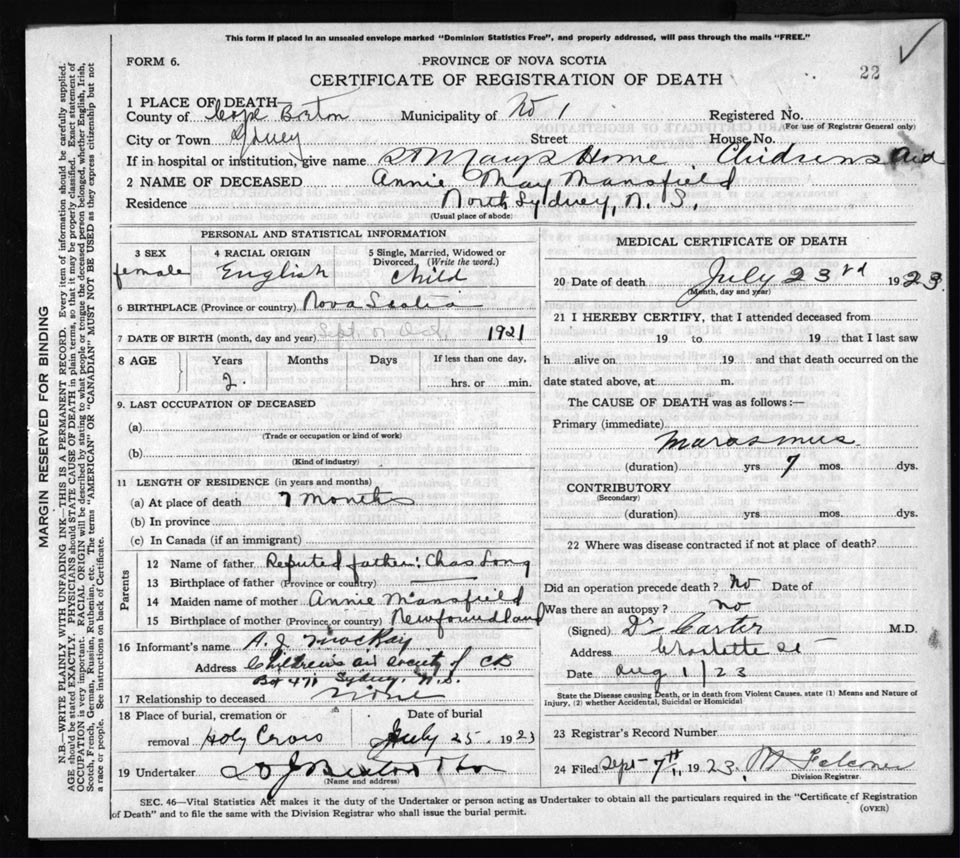 This form if placed in an unsealed envelope marked "Dominion Statistics Free", and properly addressed, will pass through the mails "FREE."
FORM 6.
PROVINCE OF NOVA SCOTIA
22
CERTIFICATE OF REGISTRATION OF DEATH
1 PLACE OF DEATH
County of Cape Breton Municipality of No 1 Registered No.
(For use of Registrar General only)
City or Town Sydney Street House No.
If in hospital or institution, give name St Mary's Home Childrens Aid
2 NAME OF DECEASED Annie May Mansfield
Residence North Sydney, N. S.
(Usual place of abode)
PERSONAL AND STATISTICAL INFORMATION
3 SEX 4 RACIAL ORIGIN 5 Single, Married, Widowed or Divorced, (Write the word.)
female English Child
6 BIRTHPLACE (Province or country) Nova Scotia
7 DATE OF BIRTH (month, day and year) Sept. or Oct 1921
8 AGE Years Months Days If less than one day,
2 hrs. or min.
9. LAST OCCUPATION OF DECEASED
(a)
(Trade or occupation or kind of work)
(b)
(Kind of industry)
11 LENGTH OF RESIDENCE (in years and months)
(a) At place of death 7 months
(b) In province
(c) In Canada (if an immigrant)
Parents
12 Name of father Reputed father: Chas Long
13 Birthplace of father (Province or country)
14 Maiden name of mother Annie Mansfield
15 Birthplace of mother (Province or country) Newfoundland
16 Informant's name A. J. MacKay
Address Childrens aid society of CB
Box 471 Sydney, N.S.
17 Relationship to deceased None
18 Place of burial, cremation or Date of burial
removal Holy Cross July 25 1923
19 Undertaker
(Name and address)
MEDICAL CERTIFICATE OF DEATH
20 Date of death July 23rd 1923.
(Month, day and year)
21 I HEREBY CERTIFY, that I attended deceased from
19 to 19 that I last saw
h alive on 19 and that death occurred on the
date stated above, at m.
The CAUSE OF DEATH was as follows :—
Primary (immediate)
Marasmus
(duration) yrs 7 mos. dys.
CONTRIBUTORY
(Secondary)
(duration) yrs. mos. dys.
22 Where was disease contracted if not at place of death?
Did an operation precede death? No Date of
Was there an autopsy? no
(Signed) Dr Carter M.D.
Address Charlotte St
Date Aug 1/23
State the Disease causing Death, or in death from Violent Causes, state (1) Means and Nature of
Injury, (2) whether Accidental, Suicidal or Homicidal
23 Registrar's Record Number
24 Filed Sept 7th, 1923,
Division Registrar.
SEC. 46—Vital Statistics Act makes it the duty of the Undertaker or person acting as Undertaker to obtain all the particulars required in the "Certificate of Registration
of Death" and to file the same with the Division Registrar who shall issue the burial permit.
(OVER)
MARGIN RESERVED FOR BINDING
N.B.—WRITE PLAINLY WITH UNFADING INK—THIS IS A PERMANENT RECORD. Every item of information should be carefully supplied.
AGE should be stated EXACTLY. PHYSICIANS should STATE CAUSE OF DEATH in plain terms, so that it may be properly classified. Exact statement of
OCCUPATION is very important. RACIAL ORIGIN will be described by stating to what people or tongue the deceased person belonged, whether English, Irish,
Scotch, French, German, Russian, Ruthenian, etc. The terms "AMERICAN" or "CANADIAN" MUST NOT BE USED as they express citizenship but not
a race or people. See instructions on back of Certificate.